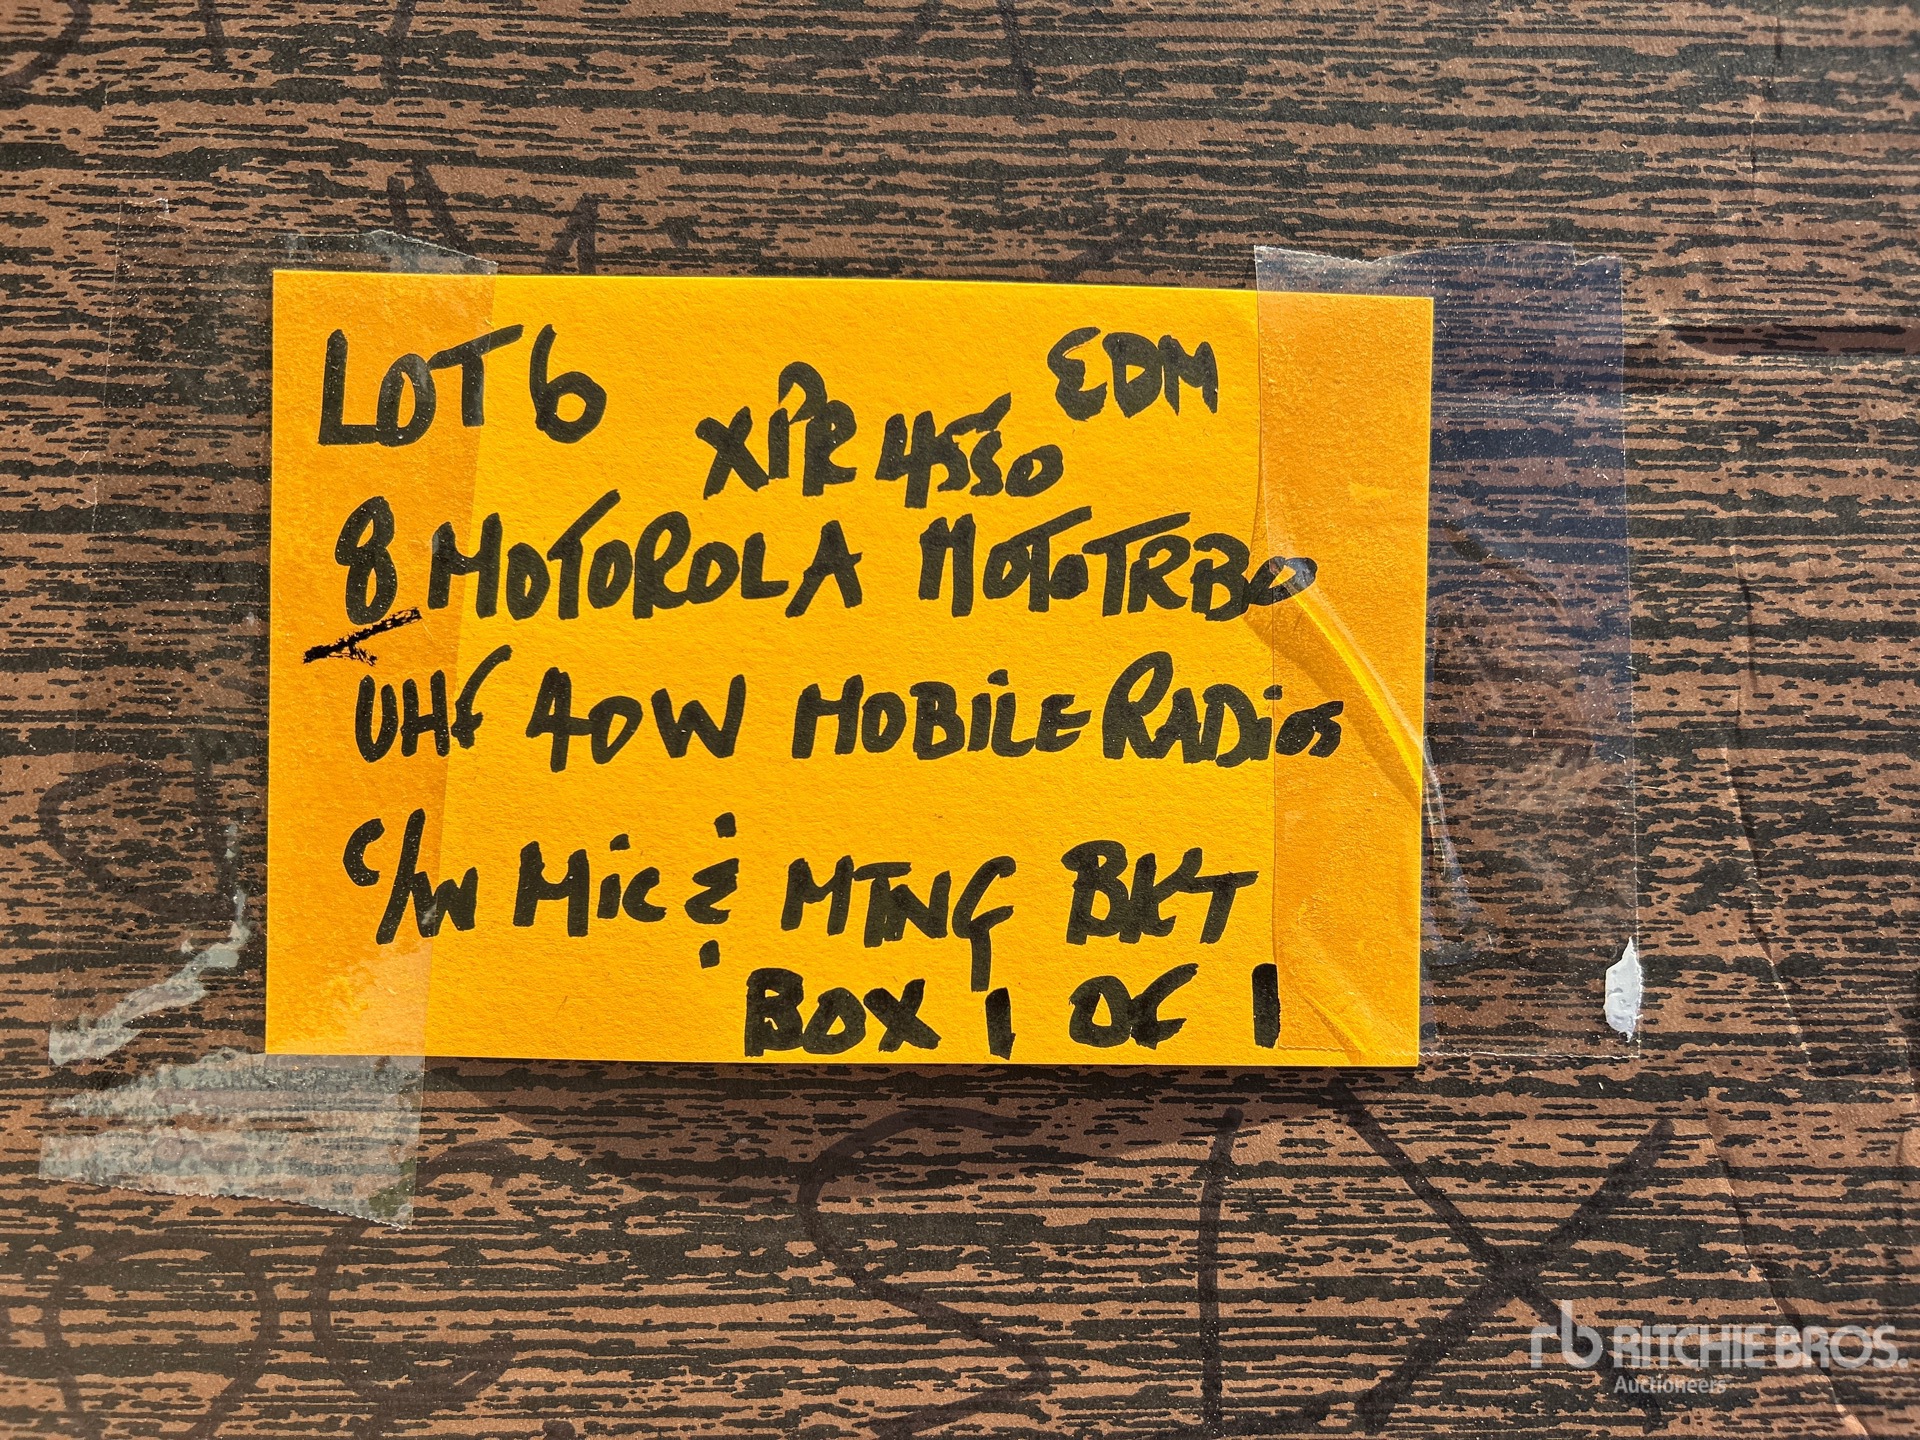 LOT 6 EDM
XPR 4550
8 MOTOROLA MOTOTRBO
UHF 40W MOBILE RADIOS
C/W MIC & MTNG BKT
BOX 1 OF 1
SIX
rb RITCHIE BROS.
Auctioneers